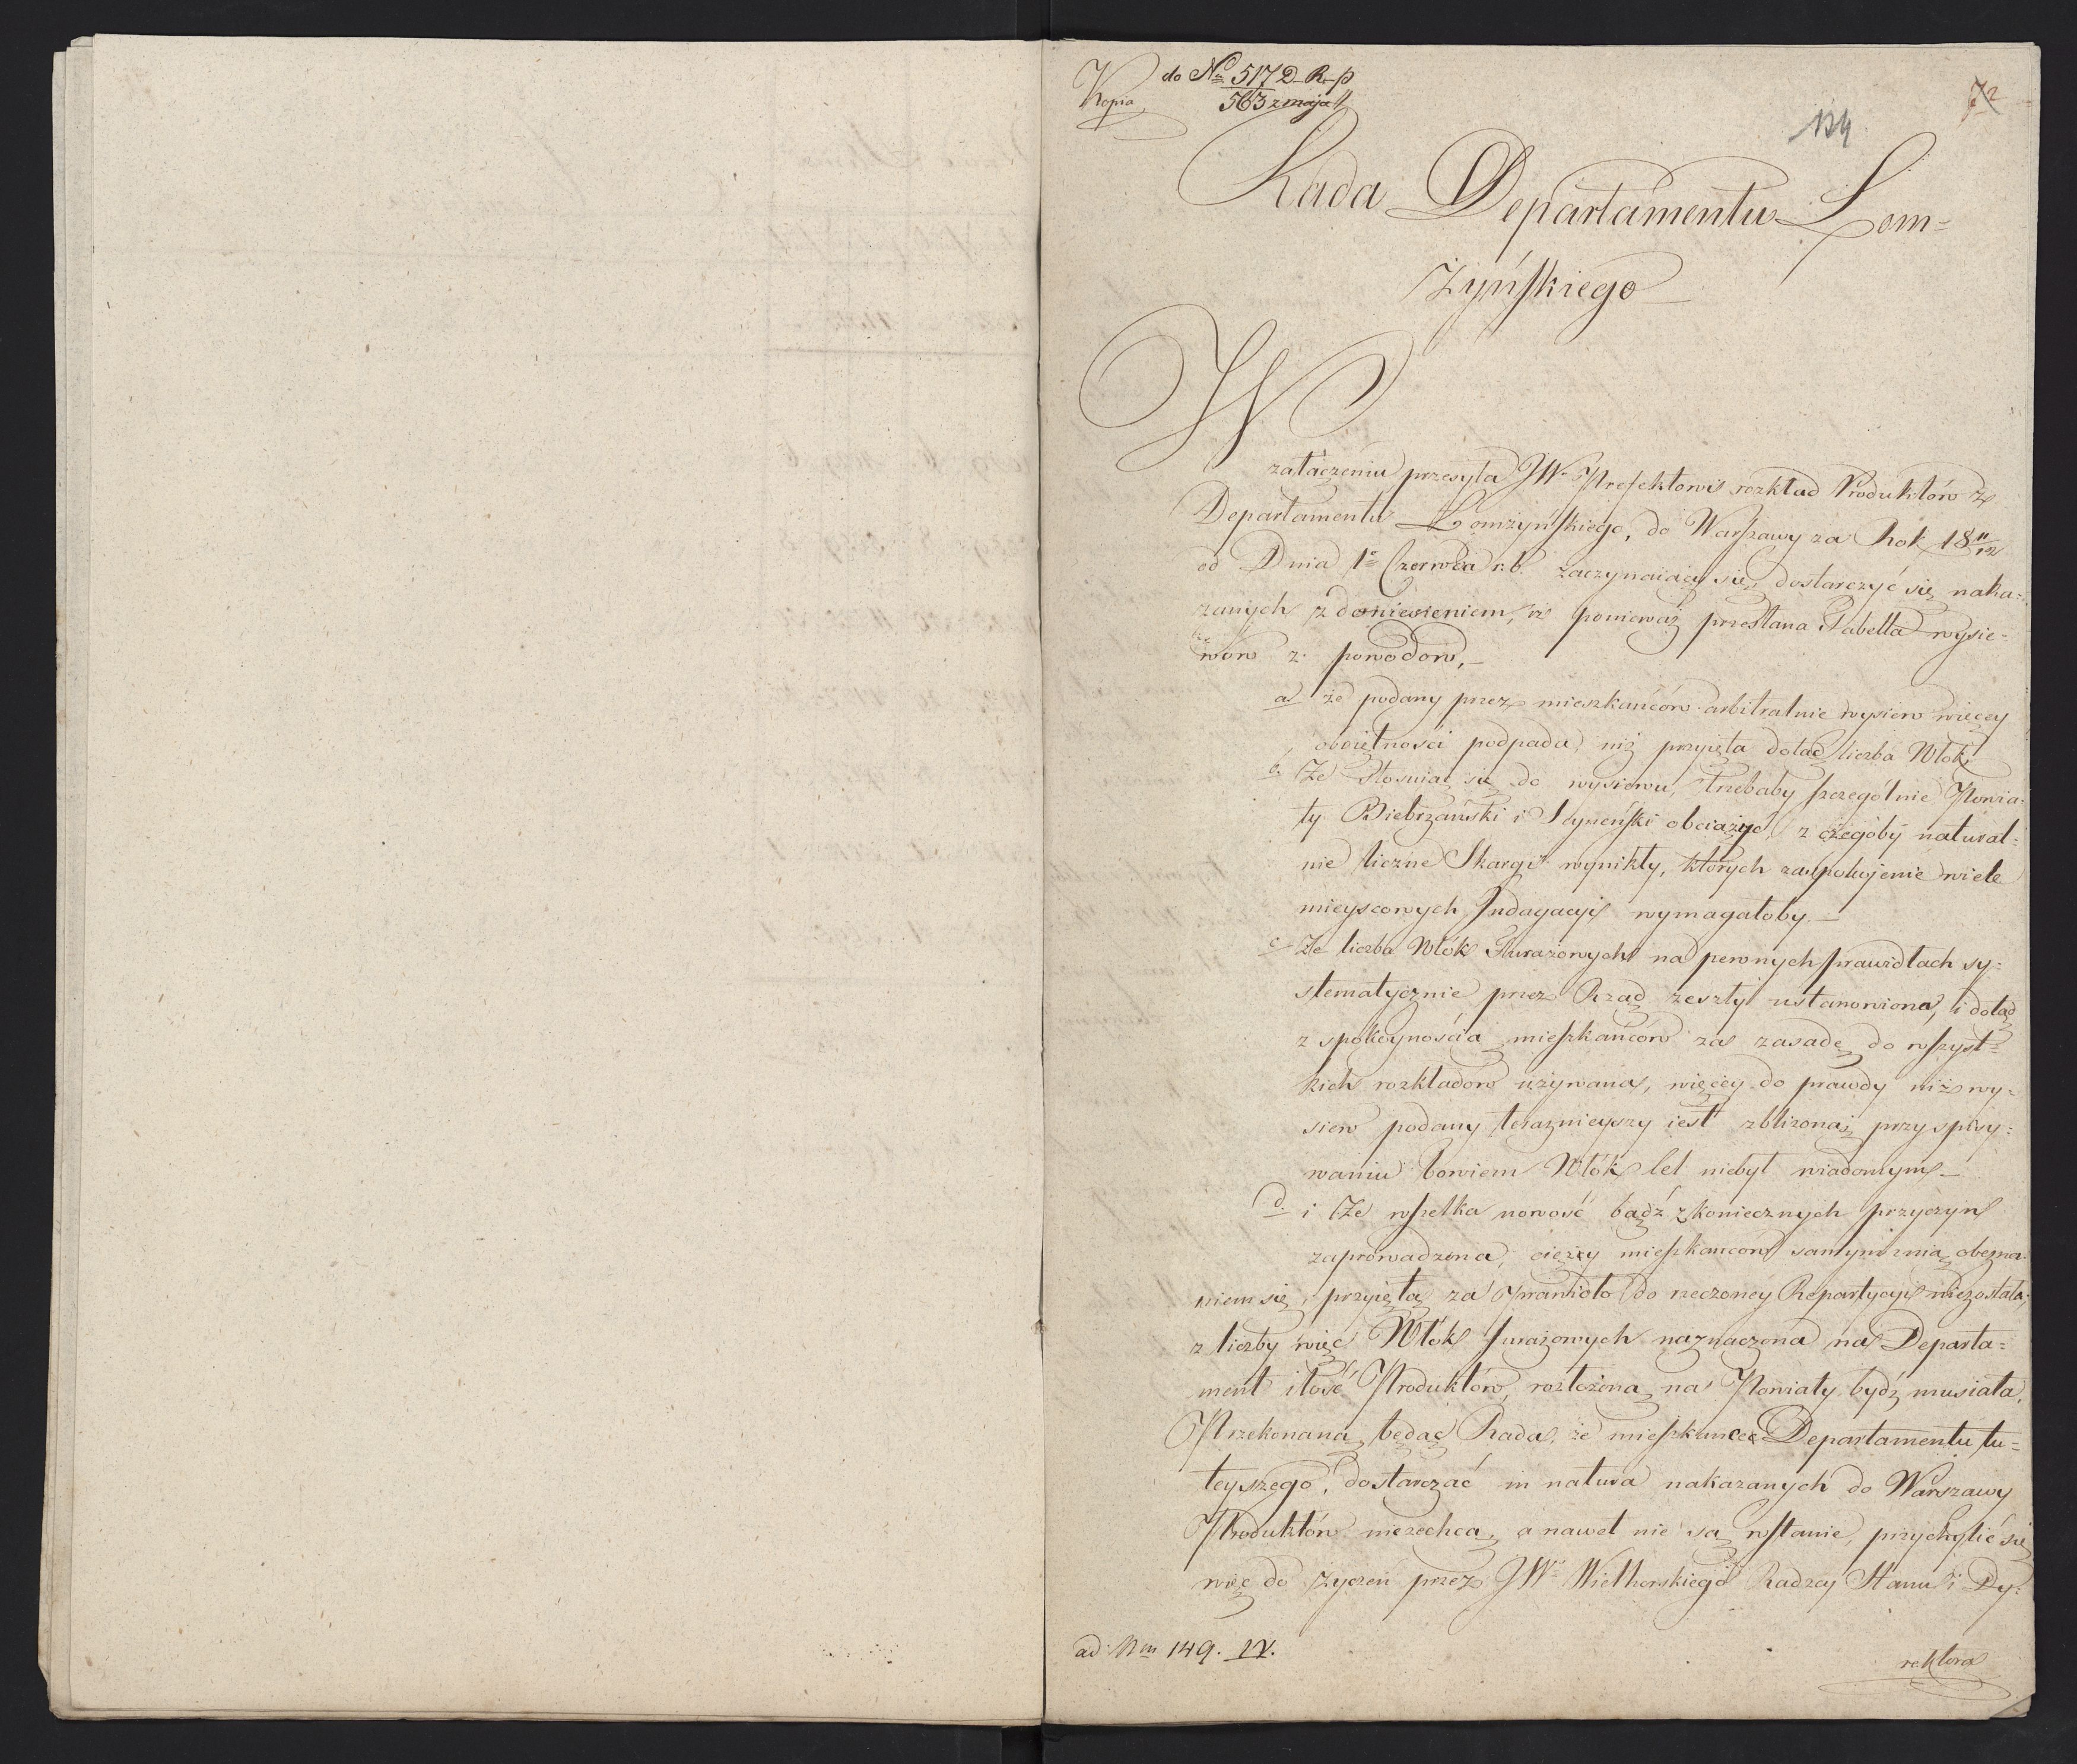 Kopia do Nro 517 D. R. p
563 z maja
124
72
Rada Departamentu Łom=
żyńskiego
W
załączeniu przesyła JW. Prefektowi rozkład Produktów z
Departamentu Łomżyńskiego, do Warszawy za Rok 18 11/12
od Dnia 1o Czerwca r.b. zaczynaiący się, dostarczyć się naka=
zanych z doniesieniem, iż ponieważ przesłana Tabella wysie=
wów z powodow,
a. że podany przez mieszkańców arbitralnie wysiew więcey
oboiętności podpada, niż przyięta dotąd liczba Włók,
b. Że stosuiąc się do wysiewu, trzebaby szczególnie Powia=
ty Biebrzański i Seyneński obciążyć, z czegóby natural=
nie liczne Skargi wynikły, których zaspokojenie wiele
mieyscowych Indagacyi wymagałoby.
c. Że liczba Włók Furażowych na pewnych prawidłach sy=
stematycznie przez Rząd zeszły ustanowiona, i dotąd
z spokoynością mieszkańców za zasadę do wszyst=
kich rozkładow używana, więcey do prawdy niż wy=
siew podany teraznieyszy iest zbliżona, przy spisy=
waniu bowiem Włók cel niebył wiadomym
d. i Że wszelka nowość bądź z koniecznych przyczyn
zaprowadzona, cięży mieszkancow samym z nią obezna=
niem się, przyiętą za prawidło do rzeczoney Repartycyi niezostała,
z liczby więc Włók furażowych naznaczona na Departa=
ment ilość Produktów, rozłożoną na Powiaty bydź musiała.
Przekonaną będąc Rada, że mieszkańce Departamentu tu=
teyszego, dostarczać in natura nakazanych do Warszawy
Produktów niezechcą, a nawet nie są wstanie, przychylić się
więc do życzeń przez JW. Wielhorskiego Radzcy Stanu i Dy=
ad Nm 149. IV.
rektora